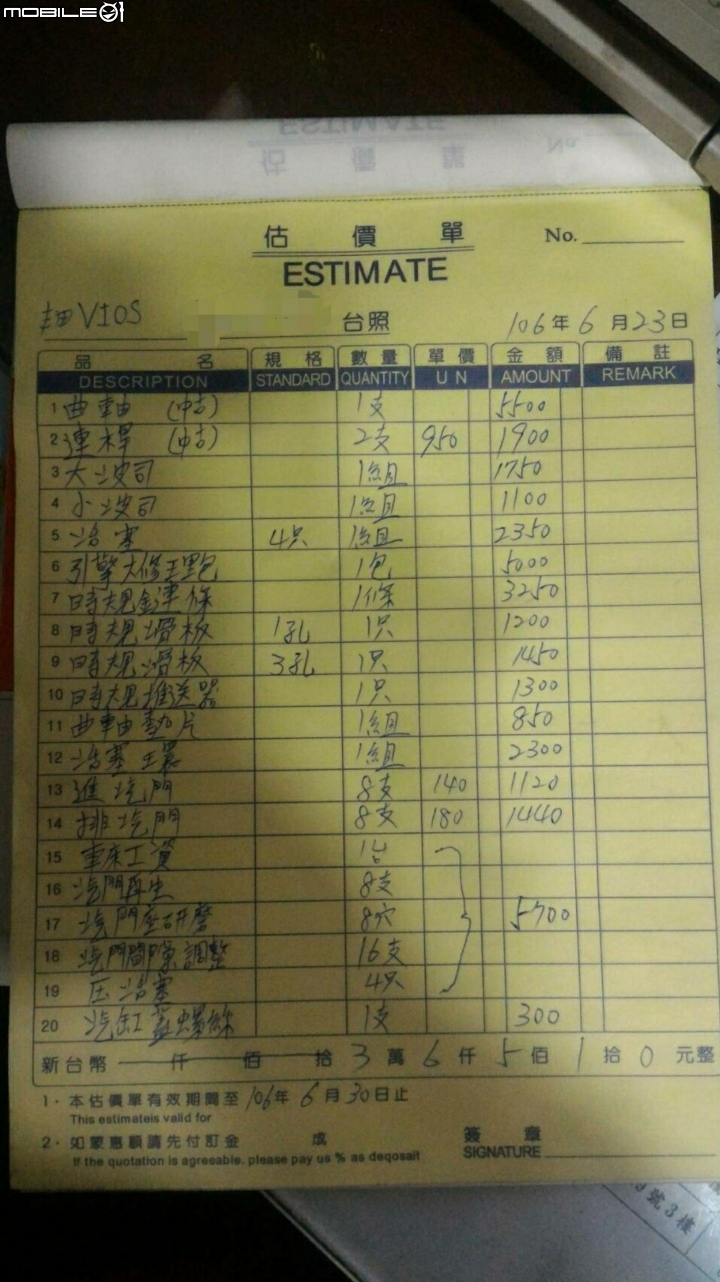 MOBILE01
ESTIMATE
估 價 單
No.
估 價 單 No.
ESTIMATE
VIOS 台照 106年 6 月 23 日
品 名 規 格 數 量 單 價 金 額 備 註
DESCRIPTION STANDARD QUANTITY U N AMOUNT REMARK
1 曲軸 (中古) 1支 5500
2 連桿 (中古) 2支 950 1900
3 大波司 1組 1750
4 小波司 1組 1100
5 活塞 4只 1組 2350
6 引擎大修理包 1包 5000
7 時規鍊條 1條 3250
8 時規滑板 1孔 1只 1200
9 時規滑板 3孔 1只 1450
10 時規推送器 1只 1300
11 曲軸墊片 1組 850
12 活塞環 1組 2300
13 進汽門 8支 140 1120
14 排汽門 8支 180 1440
15 車床工資 1台
16 汽門再生 8支
17 汽門座研磨 8穴 5700
18 汽門間隙調整 16支
19 压活塞 4只
20 汽缸蓋螺絲 1支 300
新台幣 仟 佰 拾 3 萬 6 仟 5 佰 1 拾 0 元整
1. 本估價單有效期間至 106年 6 月 30 日止
This estimateis valid for
2. 如蒙惠顧請先付訂金 成 簽 章
If the quotation is agreeable. please pay us % as deqosait SIGNATURE
號3樓